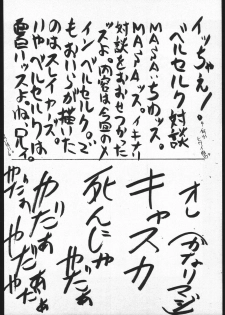 イッちゃえ!
ベルセルク対談
MASAいちゅッス。
MASAッス。イキナリ
対談をおおせつかった
ッスよ。内容は今回のメ
イン「ベルセルク。で
もおいらが描いた
のはスレイヤーズ。
いやベルセルクは
面白いッスよね。
オレ(かなりマジ)
キャスカ
死んじゃ
やだぁ
やだぁぁ
やだぁ
やだぁ